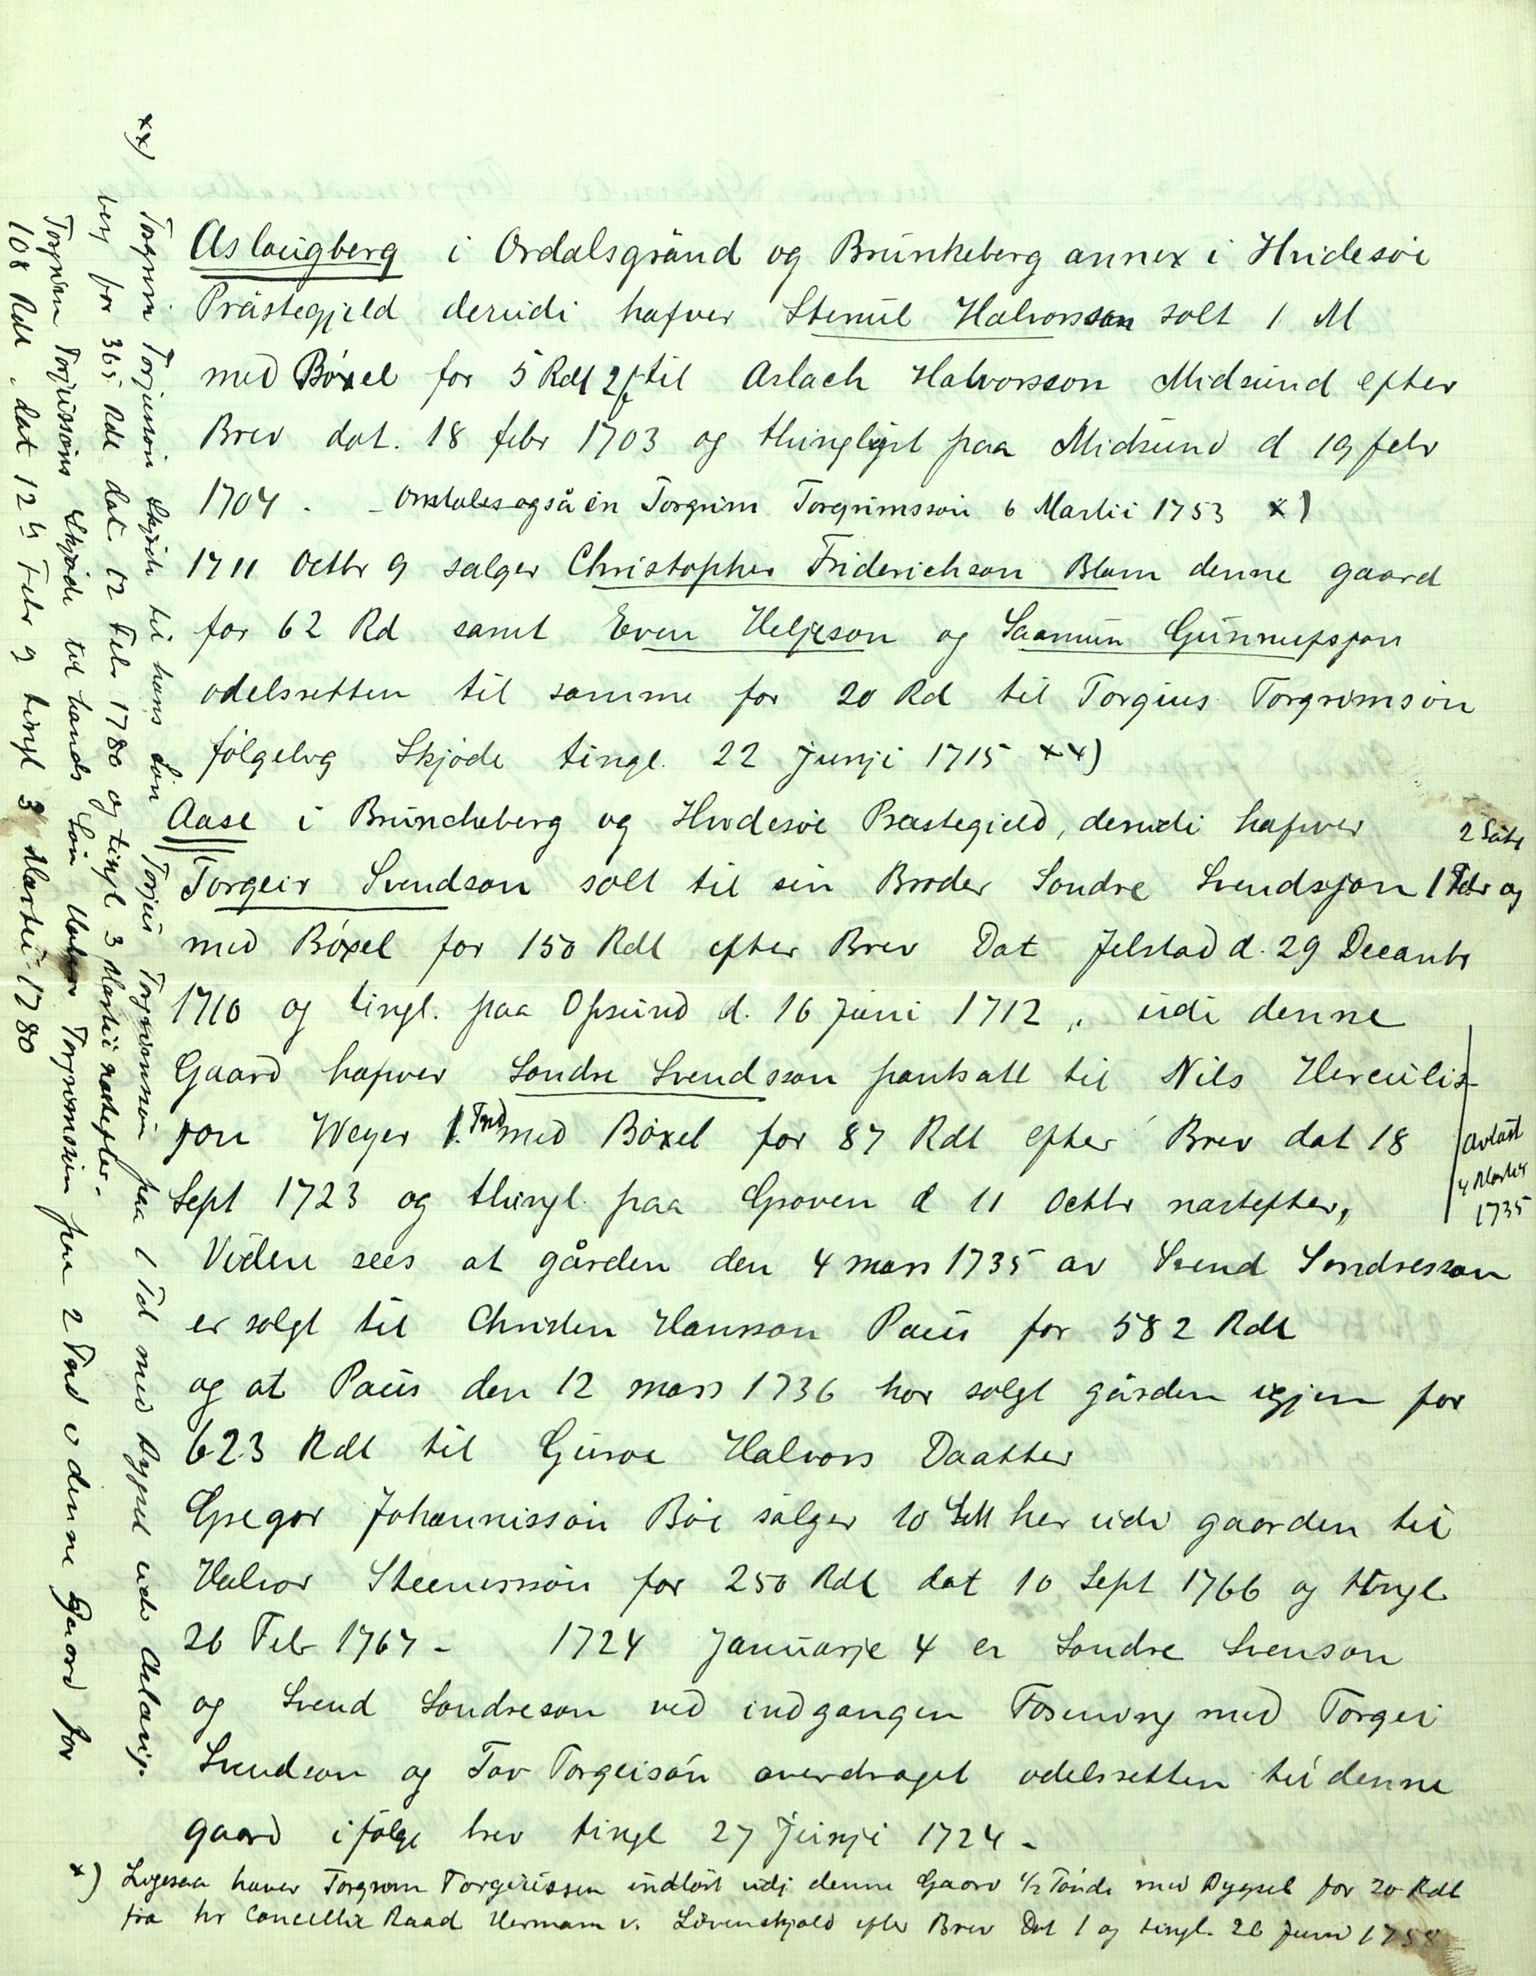 Aslaugberg i Ordalsgrand og Brunkeberg annex i Hvidesøe
Præstegjeld derudi hafver Stenul Halvorsson solt 1 M
med Böxel for 5 Rdl 2 til Aslach Halvorsson Midsund efter
Brev dat. 18 febr 1703 og thinglyst paa Midsund d 19 febr
1704. - Omtales også en Torgrim Torgrimssøn 6 Martii 1753 x)
1711 Octbr 9 salger Christopher Friderichson Blom denne gaard
for 62 Rd samt Even Heljeson og Saamun Gunnufsson
odelsretten til samme for 20 Rd til Torgius Torgrimsøn
følgelug Skjöde tingl. 22 Junji 1715 xx)
Aase i Brunckeberg og Hvidesøe Præstegield, derudi hafver 2 Sæt
Torgeir Svendson solt til sin Broder Sondre Svendsson 1 Febr og
med Böxel for 150 Rdl efter Brev Dat Jelstad d. 29 Decembr
1710 og tingl. paa Opsund d. 16 Juni 1712, udi denne
Gaard hafver Sondre Svendsson pantsatt til Nils Herculis-
son Weyer 1. Tnd med Böxel for 87 Rdl efter Brev dat 18
Sept 1723 og thingl. paa Groven d 11 Octbr nastefter,
Avlöst
4 Martii
1735
Videre sees at gården den 4 mars 1735 av Svend Sondresson
er solgt til Christen Hansson Paus for 582 Rdl
og at Paus den 12 mars 1736 har solgt gården igjen for
623 Rdl til Guroe Halvors Daatter
Gregar Johannisson Böe sælger 10 Sett her udi gaarden til
Halvor Steenersson for 250 Rdl dat 10 Sept 1766 og tingl
26 Feb 1767 - 1724 Januarje 4 er Sondre Svenson
og Svend Sondreson ved indgangen Forening med Torgei
Svendson og Tov Torgeisøn overdraget odelsretten til denne
gaard ifølge brev tingl 27 Junji 1724 -
x) Ligesaa haver Torgrim Torgiussen indløst udi denne Gaard 1/2 Tønde med Bygsel for 20 Rdl
fra hr Cancellie Raad Herman v. Løvenskjold efter Brev Dat 1 og tingl. 26 Juni 1758
xx) Torgrim Torjussøn Skjøde til hans Søn Torjus Torgrimssøn paa 1 Td med Bygsel udi Aslaug-
berg for 365 Rdl dat 12 Febr 1780 og tingl 3 Martii nastefter.
Torgrim Torjussøns Skjøde til hands Søn Halvor Torgrimssøn paa 2 Tnd i denne Gaard for
108 Rdl. dat 12 Febr og tingl 3 Martii 1780